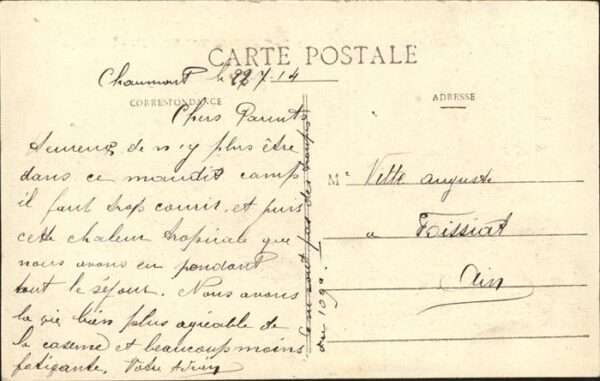 CARTE POSTALE
Chaumont le 22.7.14
CORRESPONDANCE
ADRESSE
Chers Parents
heureux de n'y plus être
dans ce maudit camp
il faut trop courir. et puis
cette chaleur tropicale que
nous avons eu pendant
tout le séjour. Nous avons
la vie bien plus agréable de
la caserne et beaucoup moins
fatigante. Votre Adrien
sont pas des troupes
du 109e.
Mr Vette auguste
a Foissiat
Ain